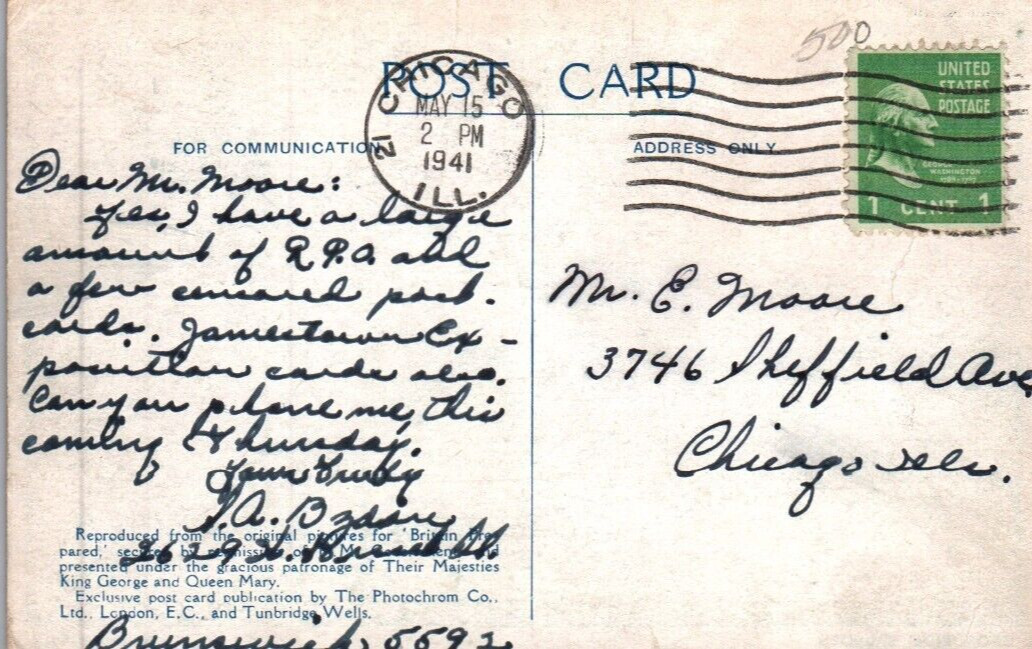 500
POST CARD
FOR COMMUNICATION
ADDRESS ONLY.
CHICAGO
21
MAY 15
2 PM
1941
ILL.
UNITED
STATES
POSTAGE
GEORGE
WASHINGTON
1789-1797
1 CENT 1
Dear Mr. Moore:
Yes, I have a large
amount of R.P.O. and
a few censored post-
cards. Jamestown Ex-
position cards also.
Can you phone me, this
coming Thursday.
Yours Truly
A.
2629 W.
Brunswick 5592
Mr. E. Moore
3746 Sheffield Ave
Chicago Ills.
Reproduced from the original pictures for 'Britain Pre-
pared,' secured by permission of
presented under the gracious patronage of Their Majesties
King George and Queen Mary.
Exclusive post card publication by The Photochrom Co.,
Ltd., London, E.C., and Tunbridge Wells.